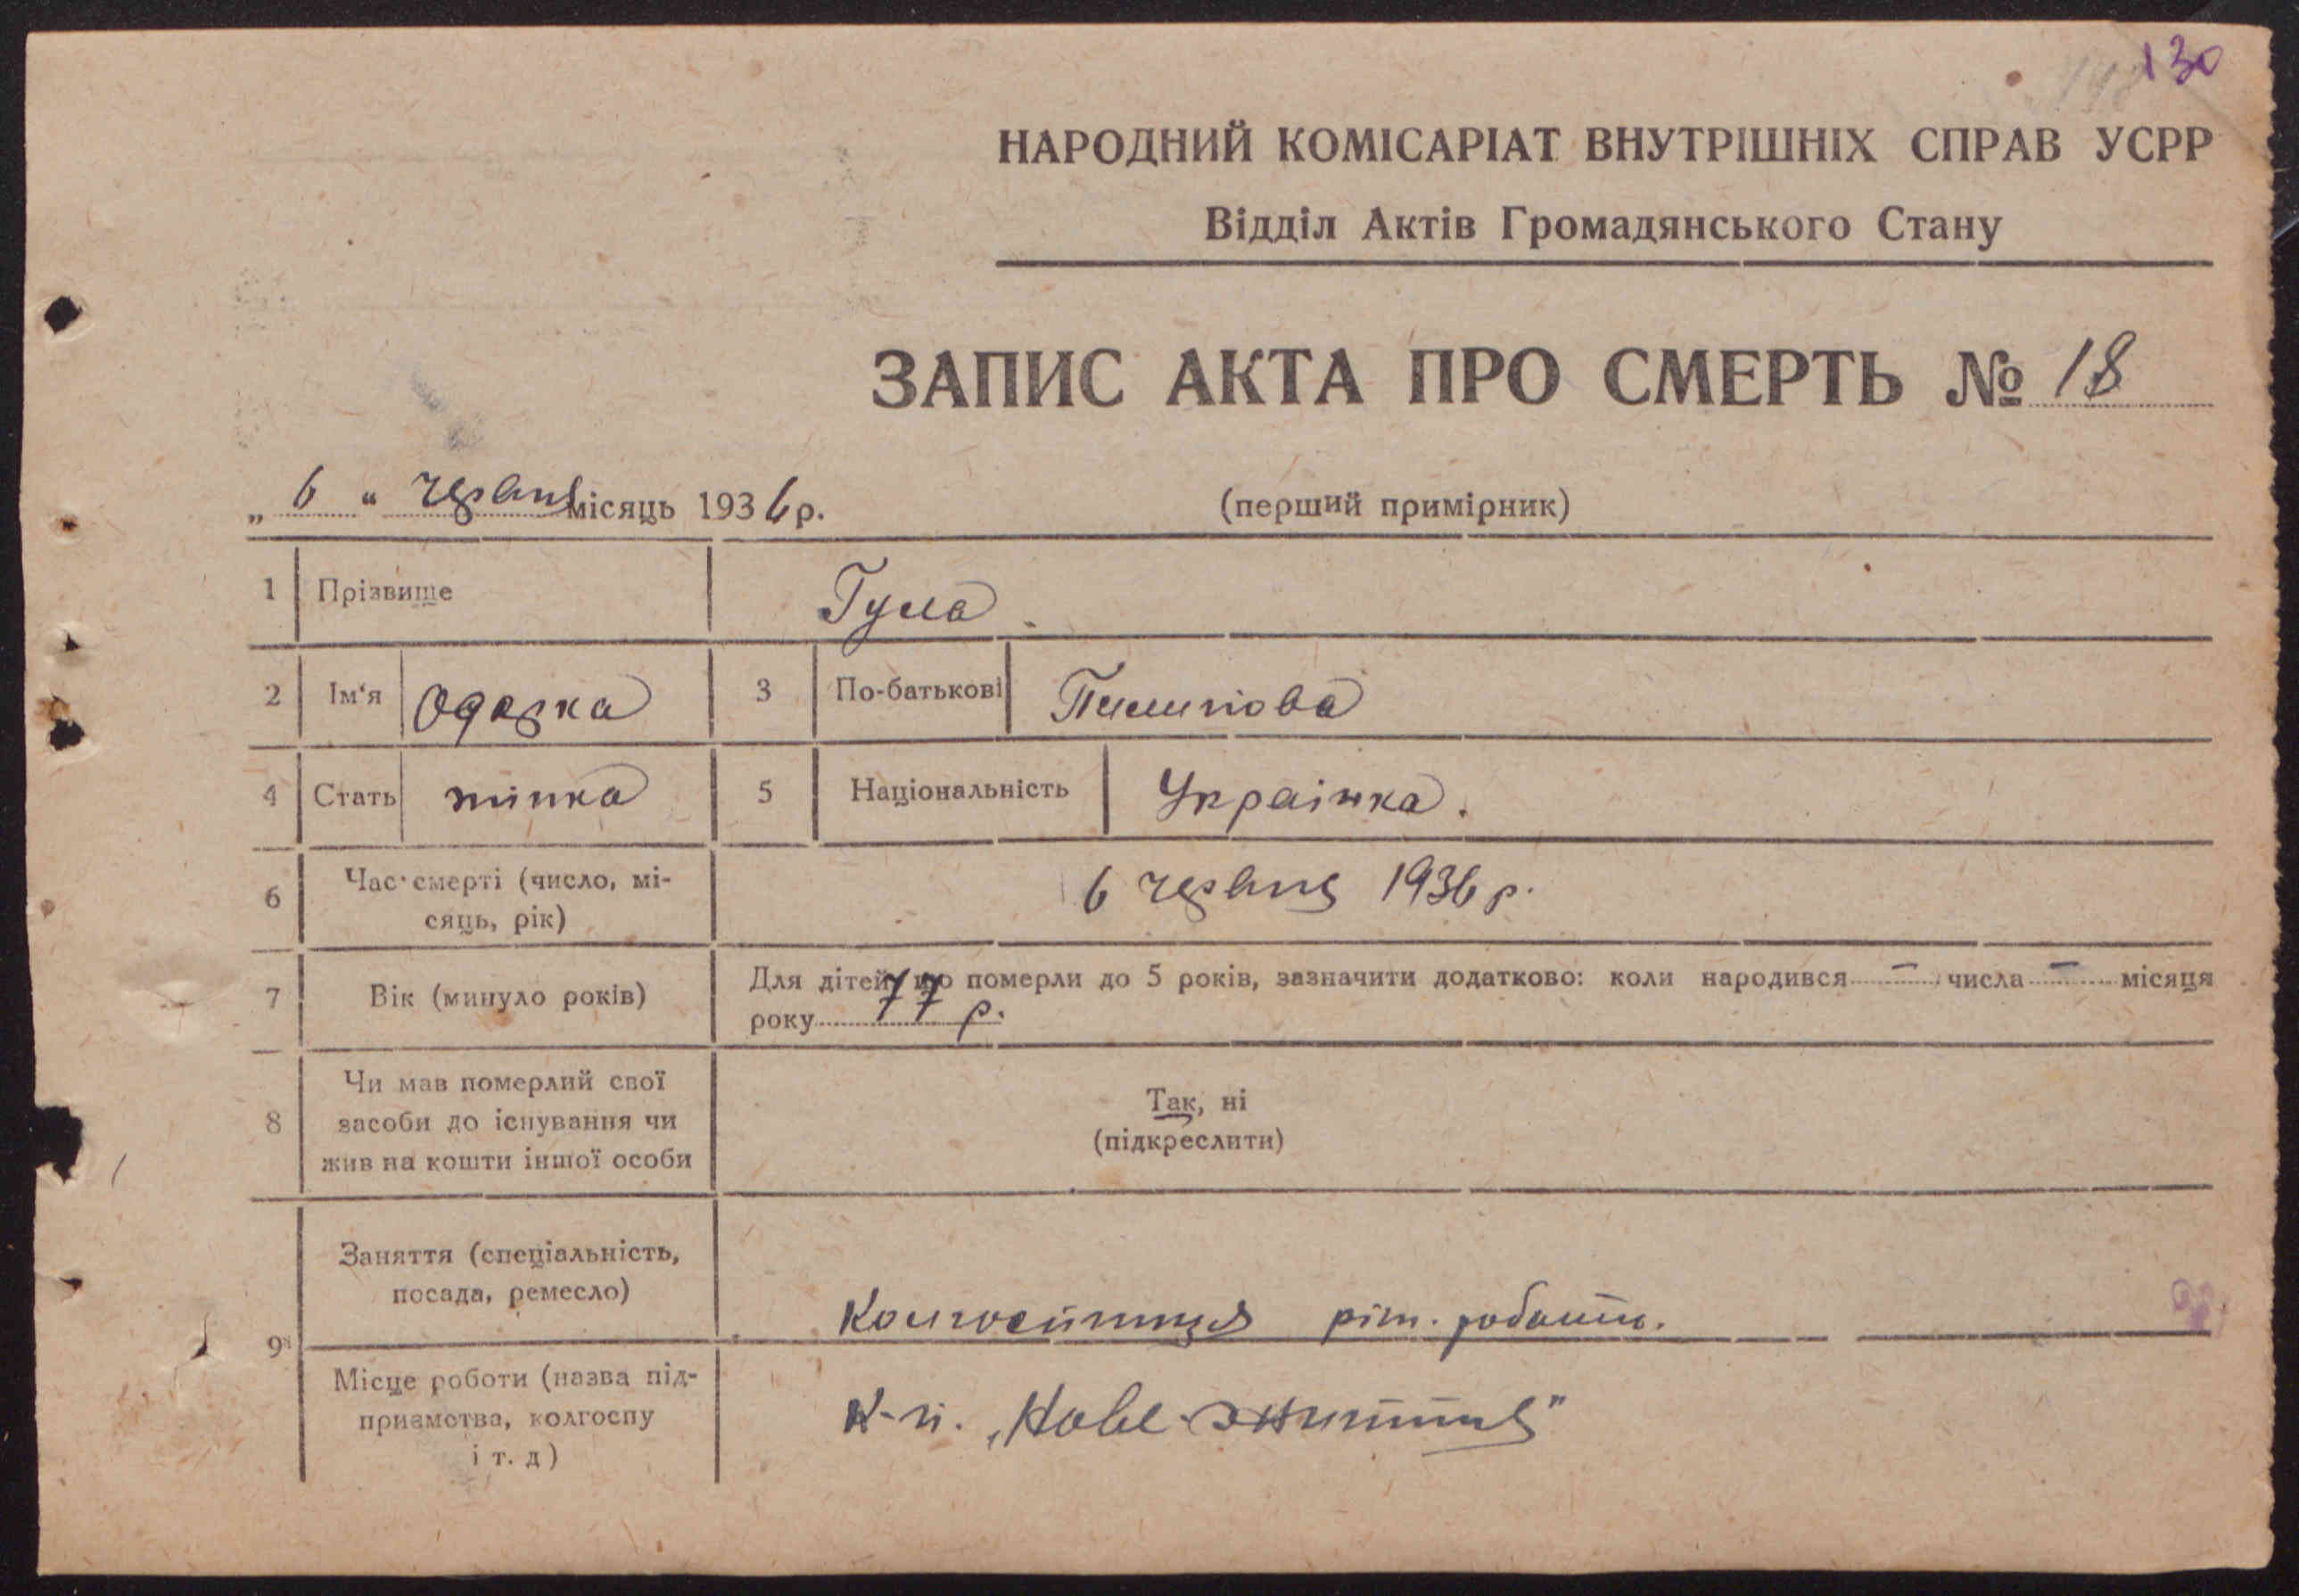 130
НАРОДНИЙ КОМІСАРІАТ ВНУТРІШНІХ СПРАВ УСРР
Відділ Актів Громадянського Стану
ЗАПИС АКТА ПРО СМЕРТЬ № 18
„ 6 “ червня місяць 1936 р. (перший примірник)
1 Прізвище Гула.
2 Ім‘я Одарка 3 По-батькові Пилипова
4 Стать жінка 5 Національність Українка.
6 Час смерті (число, мі-
сяць, рік) 6 червня 1936 р.
7 Вік (минуло років) Для дітей, що померли до 5 років, зазначити додатково: коли народився – числа – місяця
року 77 р.
8 Чи мав померлий свої
засоби до існування чи
жив на кошти іншої особи
Так, ні
(підкреслити)
9 Заняття (спеціальність,
посада, ремесло)
Колгоспниця ріш. робать.
Місце роботи (назва під-
приємства, колгоспу
і т. д)
К-п. „Нове-життя"